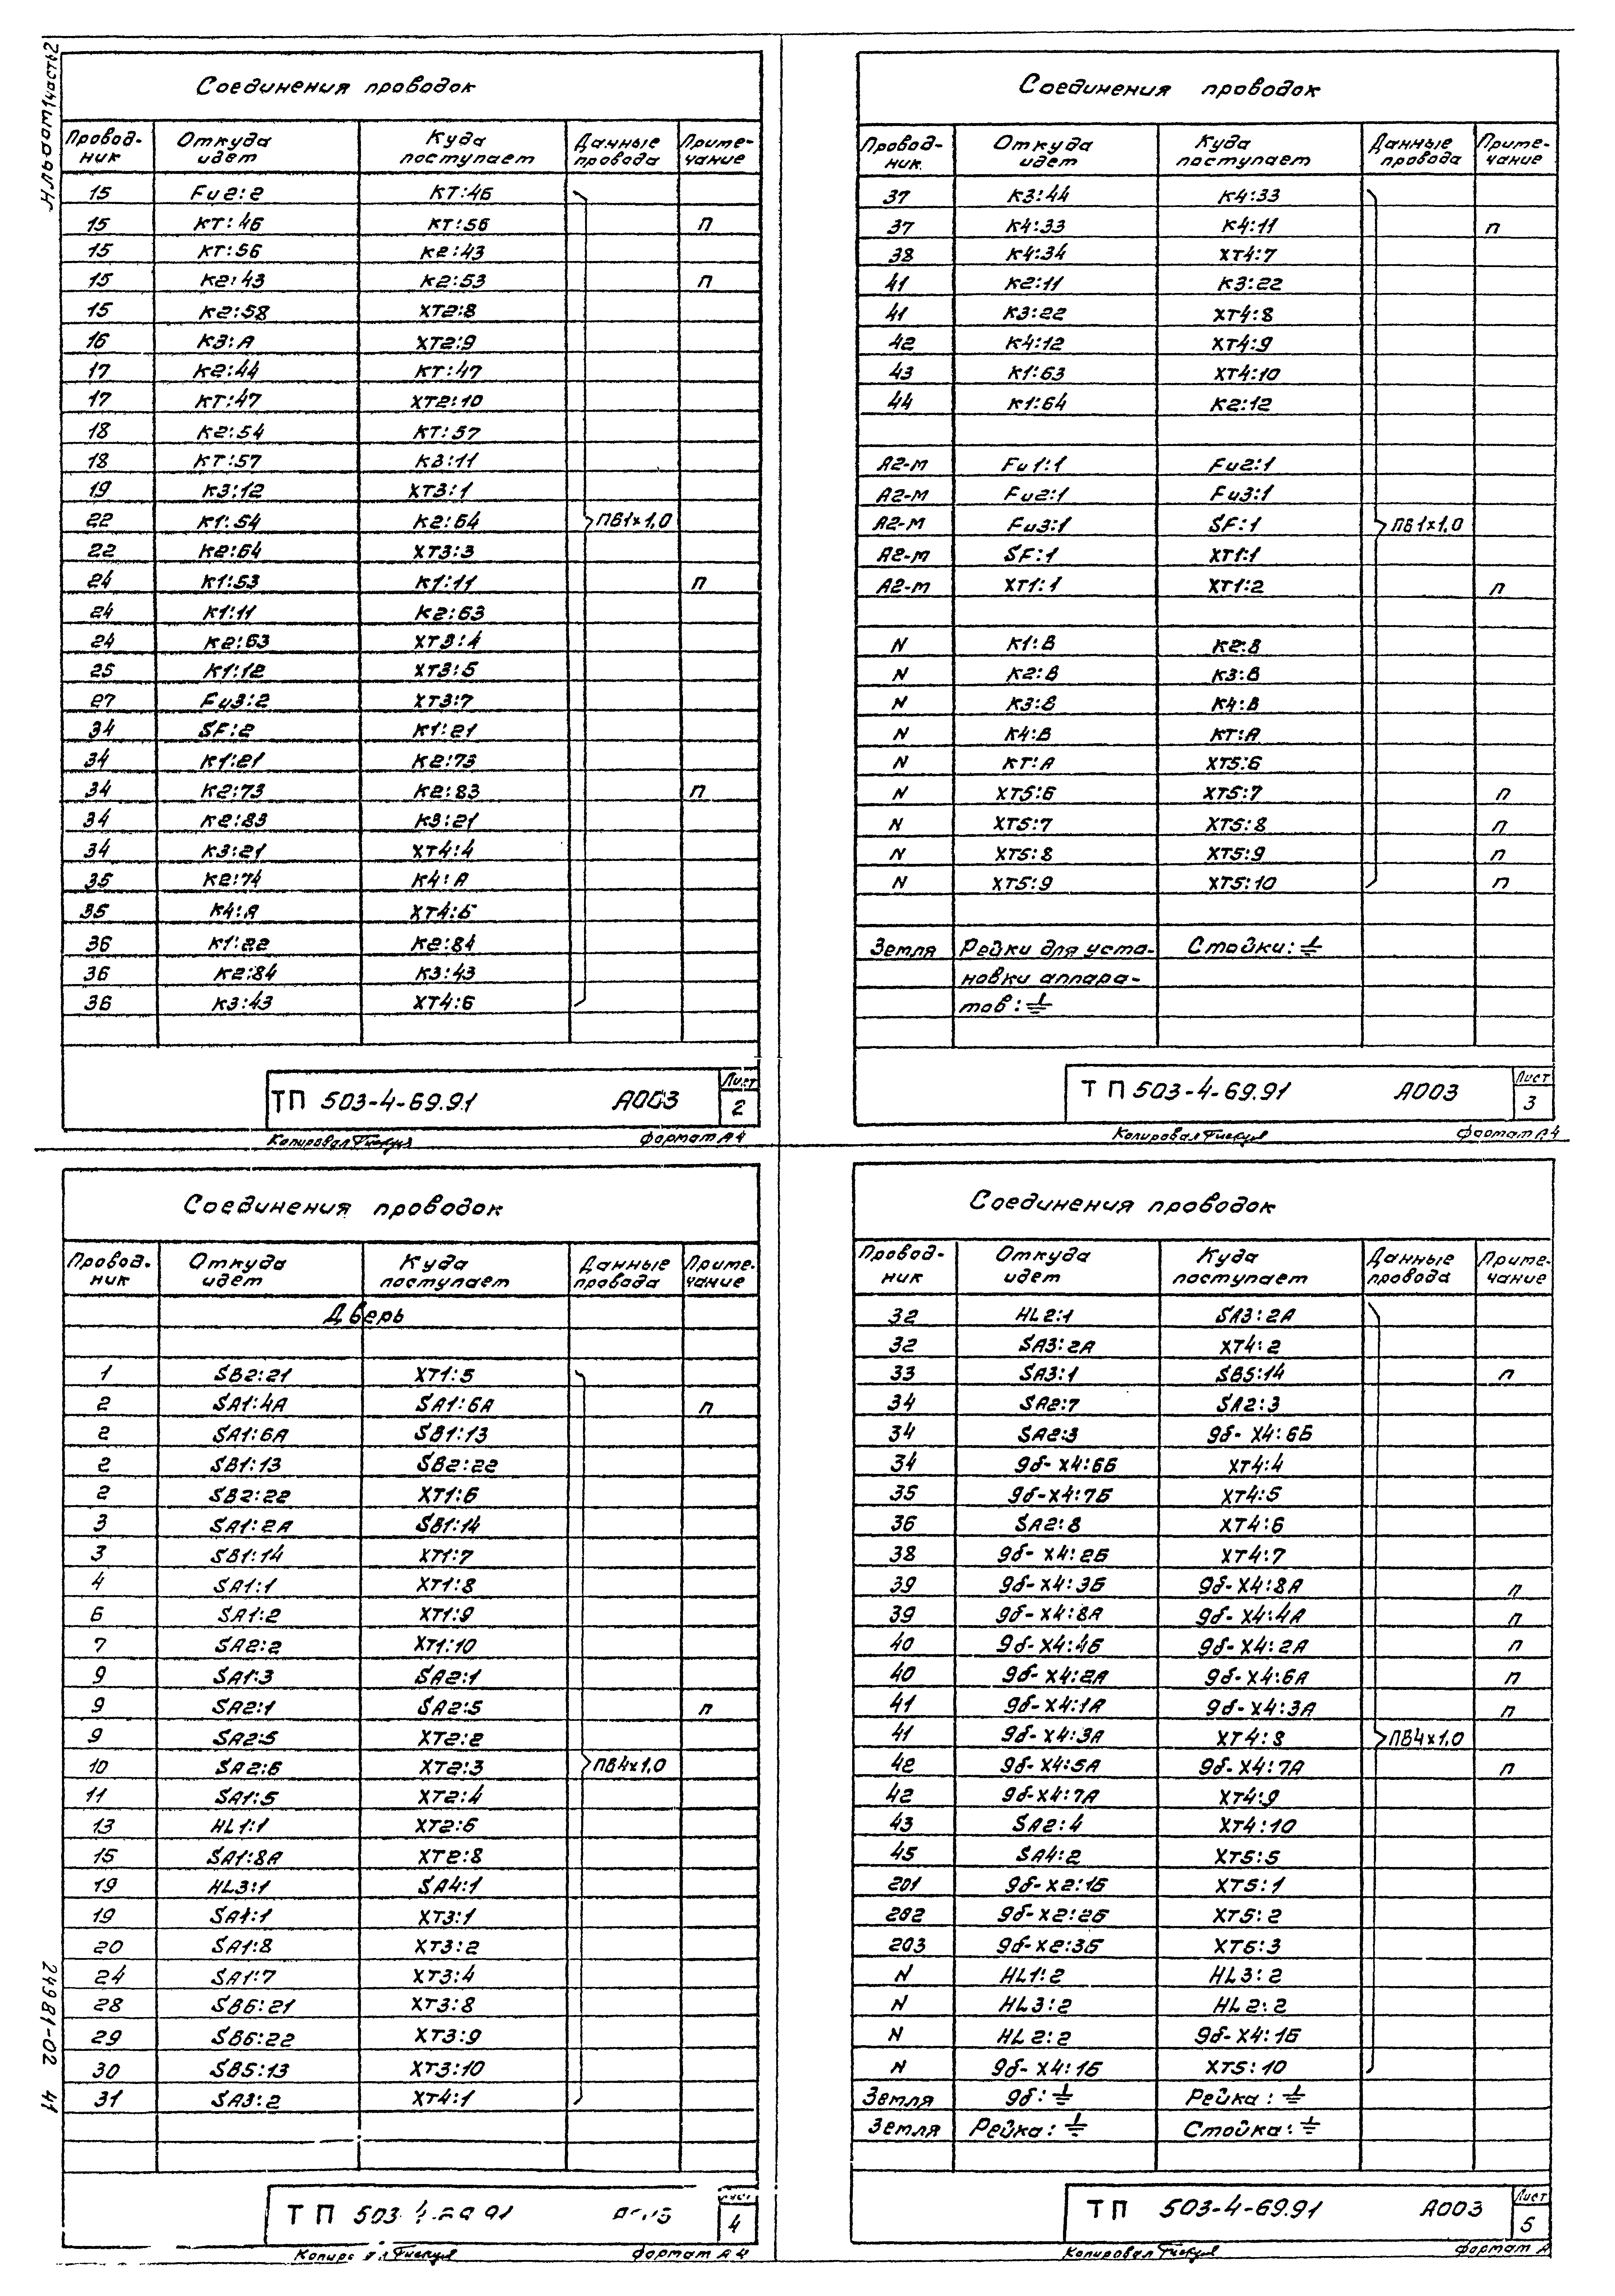 Альбом 1 часть 2
Соединения проводок
Провод- Откуда Куда Данные Приме-
ник идет поступает провода чание
15 Fu2:2 КТ:46
15 КТ:46 КТ:56 п
15 КТ:56 К2:43
15 К2:43 К2:53 п
15 К2:58 ХТ2:8
16 К3:А ХТ2:9
17 К2:44 КТ:47
17 КТ:47 ХТ2:10
18 К2:54 КТ:57
18 КТ:57 К3:11
19 К3:12 ХТ3:1
22 К1:54 К2:64 ПВ1х1,0
22 К2:64 ХТ3:3
24 К1:53 К1:11 п
24 К1:11 К2:63
24 К2:63 ХТ3:4
25 К1:12 ХТ3:5
27 Fu3:2 ХТ3:7
34 SF:2 К1:21
34 К1:21 К2:73
34 К2:73 К2:83 п
34 К2:83 К3:21
34 К3:21 ХТ4:4
35 К2:74 К4:А
35 К4:А ХТ4:5
36 К1:22 К2:84
36 К2:84 К3:43
36 К3:43 ХТ4:6
ТП 503-4-69.91 А003 Лист
2
Копировал формат А4
Соединения проводок
Провод- Откуда Куда Данные Приме-
ник идет поступает провода чание
37 К3:44 К4:33
37 К4:33 К4:11 п
38 К4:34 ХТ4:7
41 К2:11 К3:22
41 К3:22 ХТ4:8
42 К4:12 ХТ4:9
43 К1:63 ХТ4:10
44 К1:64 К2:12
А2-М Fu1:1 Fu2:1
А2-М Fu2:1 Fu3:1
А2-М Fu3:1 SF:1 ПВ1х1,0
А2-М SF:1 ХТ1:1
А2-М ХТ1:1 ХТ1:2 п
N К1:В К2:В
N К2:В К3:В
N К3:В К4:В
N К4:В КТ:А
N КТ:А ХТ5:6
N ХТ5:6 ХТ5:7 п
N ХТ5:7 ХТ5:8 п
N ХТ5:8 ХТ5:9 п
N ХТ5:9 ХТ5:10 п
Земля Рейки для уста- Стойки: ⏚
новки аппара-
тов: ⏚
ТП 503-4-69.91 А003 Лист
3
Копировал формат А4
Соединения проводок
Провод- Откуда Куда Данные Приме-
ник идет поступает провода чание
Дверь
1 SB2:21 ХТ1:5
2 SA1:4А SA1:6А п
2 SA1:6А SB1:13
2 SB1:13 SB2:22
2 SB2:22 ХТ1:6
3 SA1:2А SB1:14
3 SB1:14 ХТ1:7
4 SA1:1 ХТ1:8
6 SA1:2 ХТ1:9
7 SA2:2 ХТ1:10
9 SA1:3 SA2:1
9 SA2:1 SA2:5 п
9 SA2:5 ХТ2:2
10 SA2:6 ХТ2:3 ПВ4х1,0
11 SA1:5 ХТ2:4
13 HL1:1 ХТ2:6
15 SA1:8А ХТ2:8
19 HL3:1 SA4:1
19 SA4:1 ХТ3:1
20 SA1:8 ХТ3:2
24 SA1:7 ХТ3:4
28 SB6:21 ХТ3:8
29 SB6:22 ХТ3:9
30 SB5:13 ХТ3:10
31 SA3:2 ХТ4:1
24981-02 41
ТП 503-4-69.91 Лист
4
формат А4
Соединения проводок
Провод- Откуда Куда Данные Приме-
ник идет поступает провода чание
32 HL2:1 SA3:2А
32 SA3:2А ХТ4:2
33 SA3:1 SB5:14 п
34 SA2:7 SA2:3
34 SA2:3 9б-Х4:6Б
34 9б-Х4:6Б ХТ4:4
35 9б-Х4:7Б ХТ4:5
36 SA2:8 ХТ4:6
38 9б-Х4:2Б ХТ4:7
39 9б-Х4:3Б 9б-Х4:8А п
39 9б-Х4:8А 9б-Х4:4А п
40 9б-Х4:4Б 9б-Х4:2А п
40 9б-Х4:2А 9б-Х4:6А п
41 9б-Х4:1А 9б-Х4:3А п
41 9б-Х4:3А ХТ4:8 ПВ4х1,0
42 9б-Х4:5А 9б-Х4:7А п
42 9б-Х4:7А ХТ4:9
43 SA2:4 ХТ4:10
45 SA4:2 ХТ5:5
201 9б-Х2:1Б ХТ5:1
202 9б-Х2:2Б ХТ5:2
203 9б-Х2:3Б ХТ5:3
N HL1:2 HL3:2
N HL3:2 HL2:2
N HL2:2 9б-Х4:1Б
N 9б-Х4:1Б ХТ5:10
Земля 9б: ⏚ Рейка: ⏚
Земля Рейка: ⏚ Стойка: ⏚
ТП 503-4-69.91 А003 Лист
5
Копировал формат А